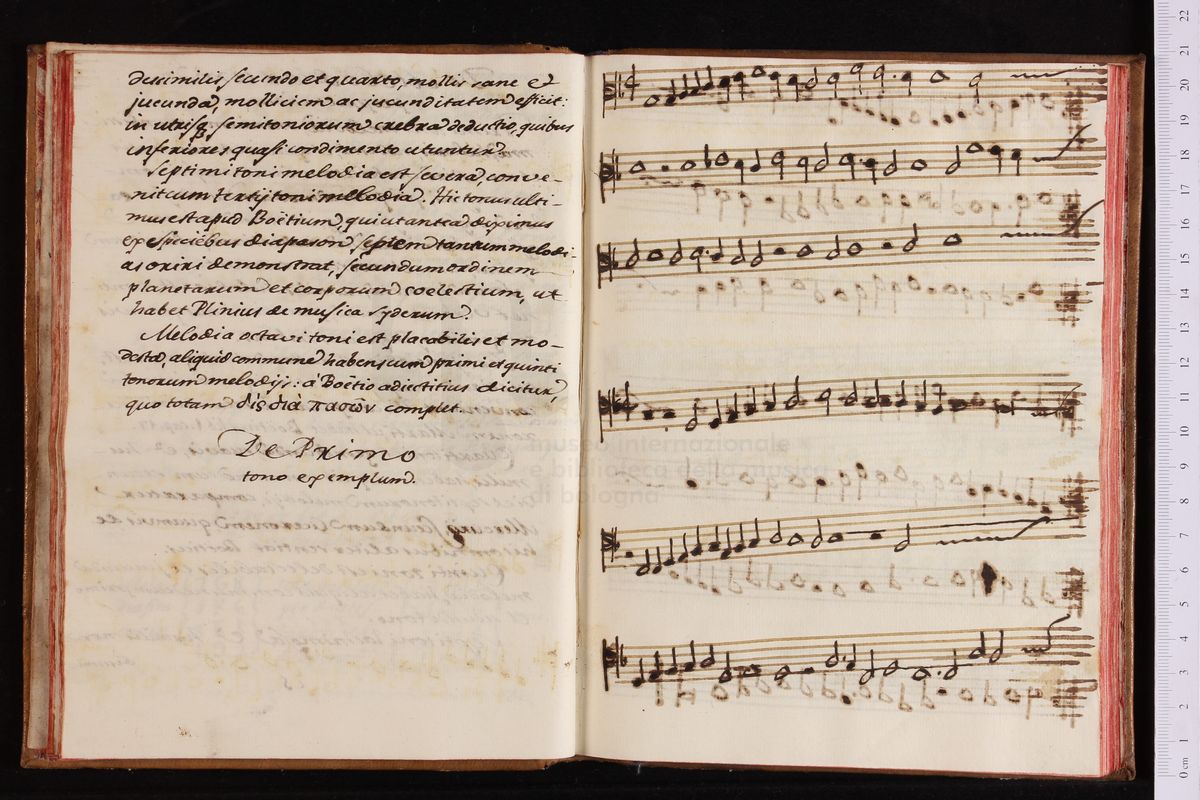 dissimilis secundo et quarto, mollis sane et
jucunda, molliciem ac jucunditatem efficit:
in utrisq. semitoniorum crebra deductio, quibus
inferiores quasi condimento utuntur.
Septimi toni melodia est severa, conve-
nit cum tertij toni melodia. Hic tonus ulti-
mus est apud Boëtium, qui ut antea diximus
ex speciebus diapason septem tantum melodi-
as oriri demonstrat, secundum ordinem
planetarum et corporum coelestium, ut
habet Plinius de musica syderum.
Melodia octavi toni est placabilis et mo-
desta, aliquid commune habens cum primi et quinti
tonorum melodijs: à Boëtio adiectitius dicitur,
quo totam δὶς διὰ πασῶν complet.
De Primo
tono exemplum.
museo internazionale
e biblioteca della musica
di bologna
22
21
20
19
18
17
16
15
14
13
12
11
10
9
8
7
6
5
4
3
2
1
0 cm